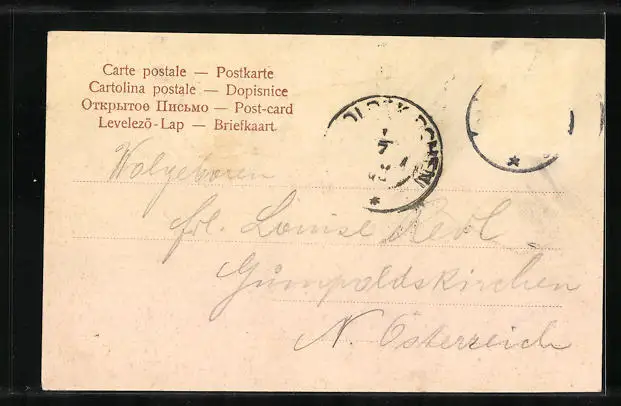 Carte postale — Postkarte
Cartolina postale — Dopisnice
Открытое Письмо — Post-card
Levelező-Lap — Briefkaart.
Wolgeboren
frl. Louise
Gumpoldskirchen
N. Österreich